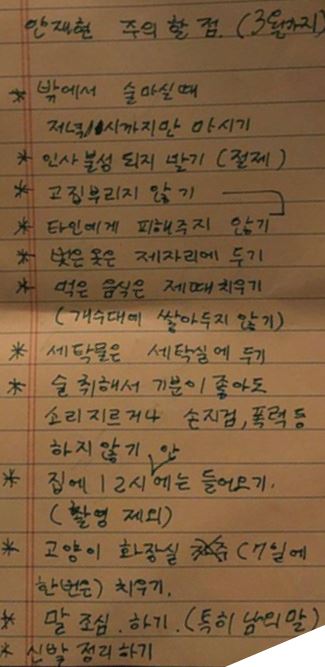 안재현 주의 할 점. (3월까지)
* 밖에서 술마실때
저녁 11시까지만 마시기
* 인사불성 되지 말기 (절제)
* 고집부리지 않기
* 타인에게 피해주지 않기
* 벗은 옷은 제자리에 두기
* 먹은 음식은 제때 치우기
(개수대에 쌓아두지 않기)
* 세탁물은 세탁실에 두기
* 술 취해서 기분이 좋아도
소리지르거나 손지검, 폭력 등
하지 않기
* 집에 12시 안에는 들어오기.
(촬영 제외)
* 고양이 화장실 (7일에
한번은) 치우기.
* 말 조심. 하기. (특히 남의 말)
* 신발 정리 하기